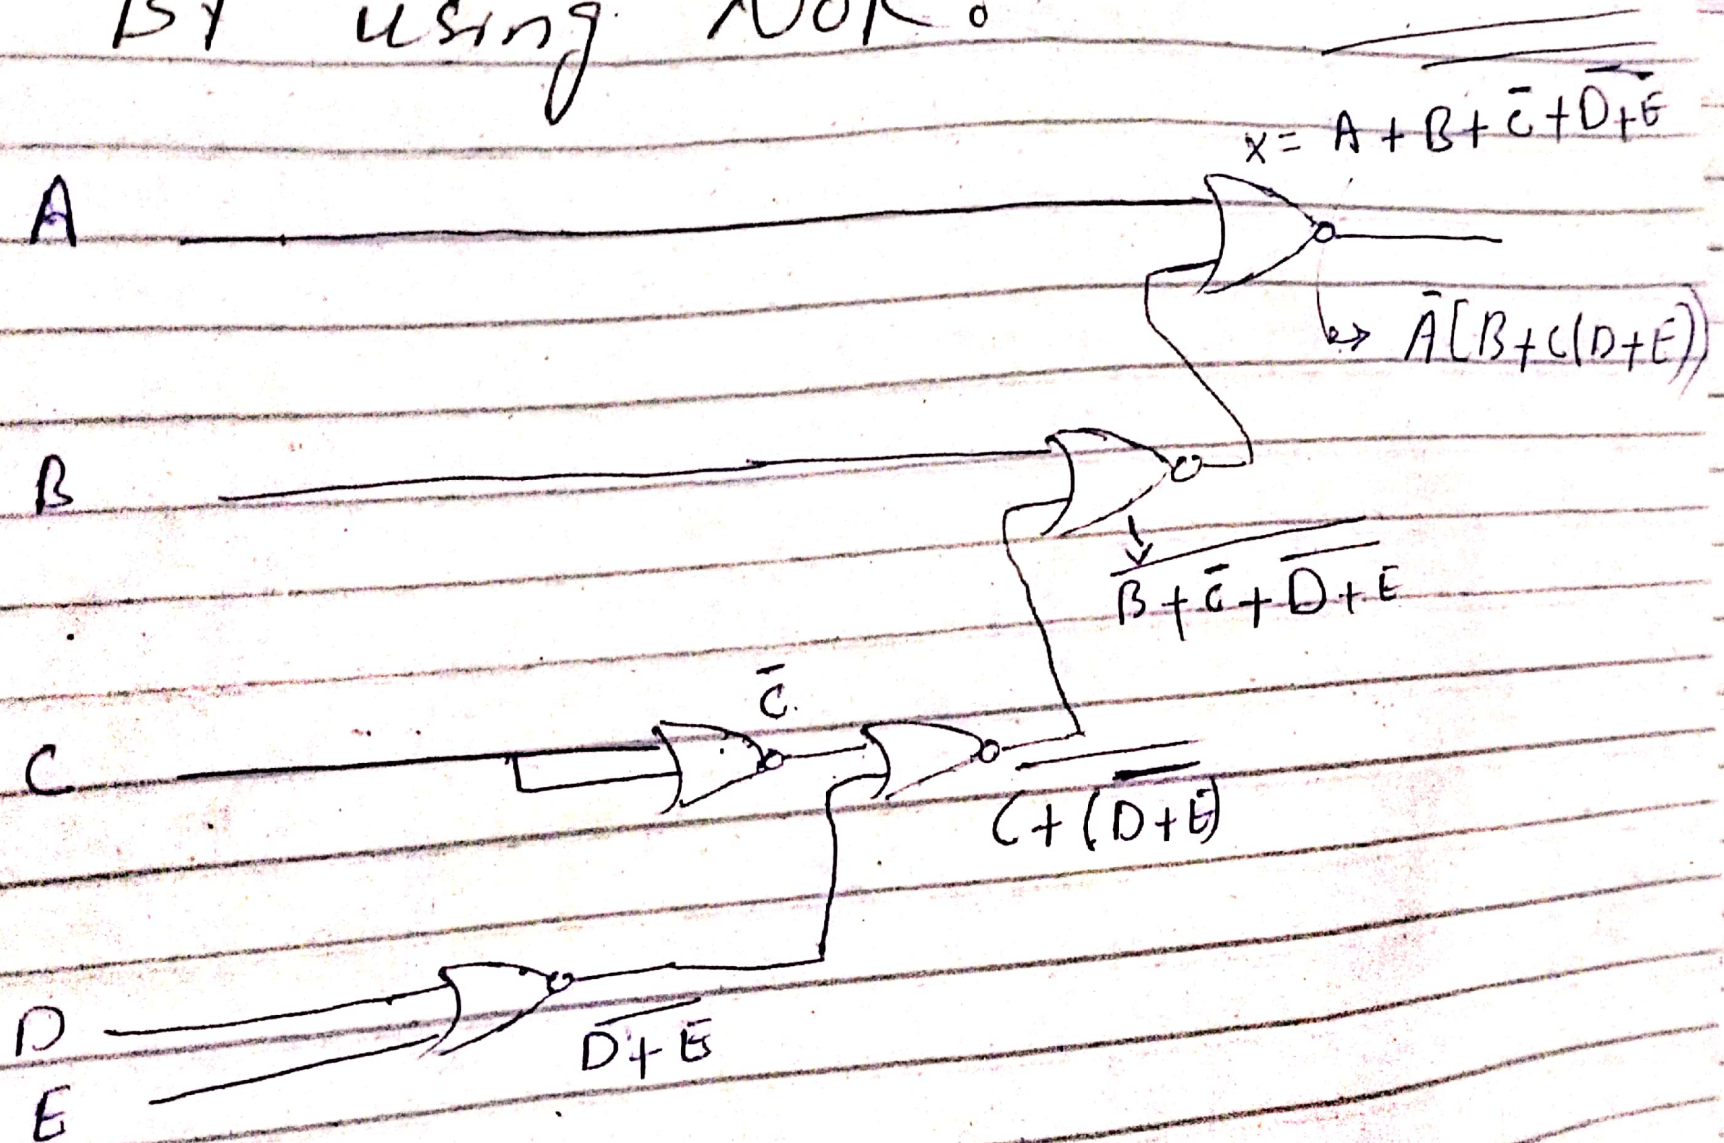 By using NOR:
x = A + B + C̄ + D+E
A
Ā[B+C(D+E))
B
B + C̄ + D+E
C̄.
C
C+(D+E)
D
D+E
E